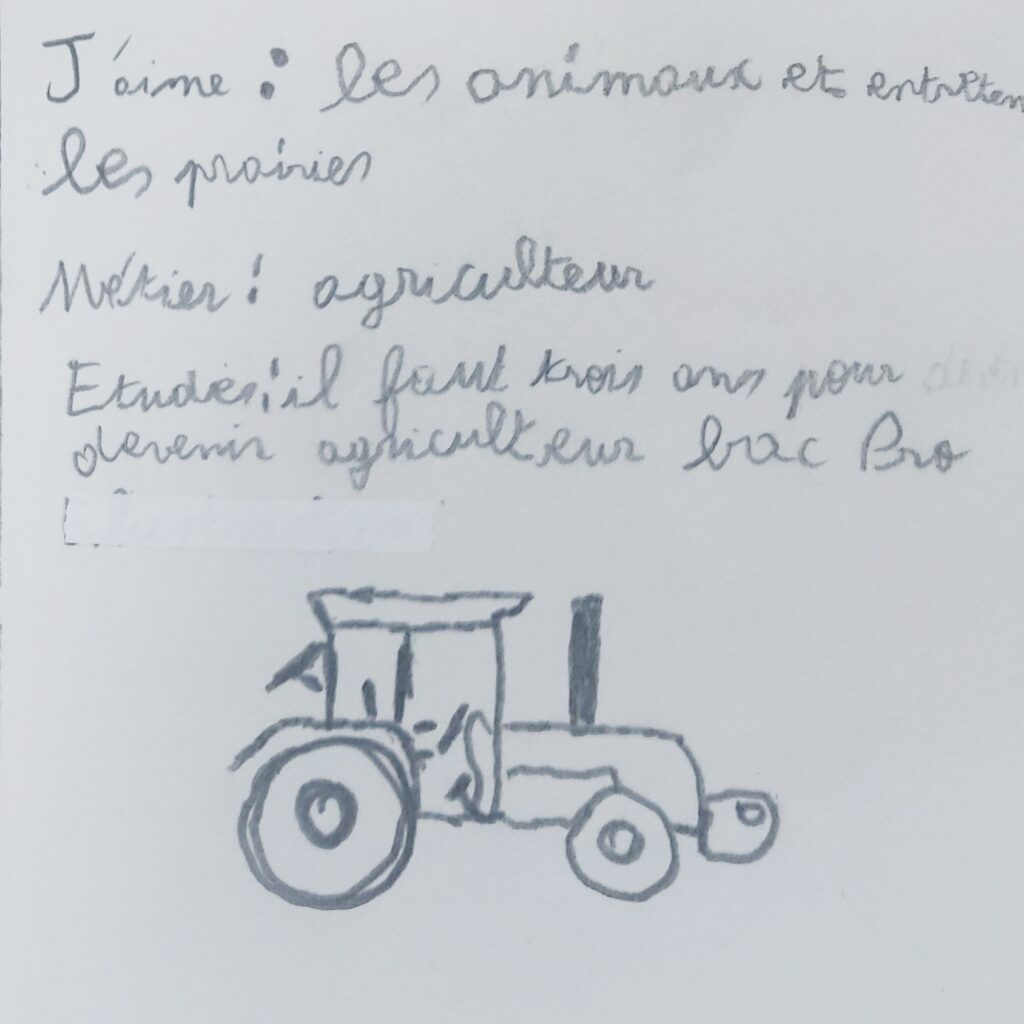 J'aime : les animaux et entretien
les prairies
Métier : agriculteur
Etudes : il faut trois ans pour
devenir agriculteur bac Pro